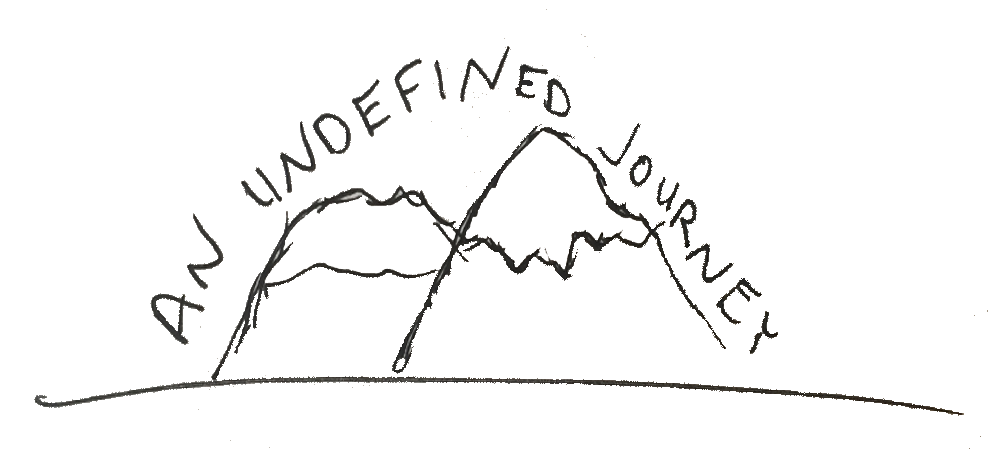 AN UNDEFINED JOURNEY